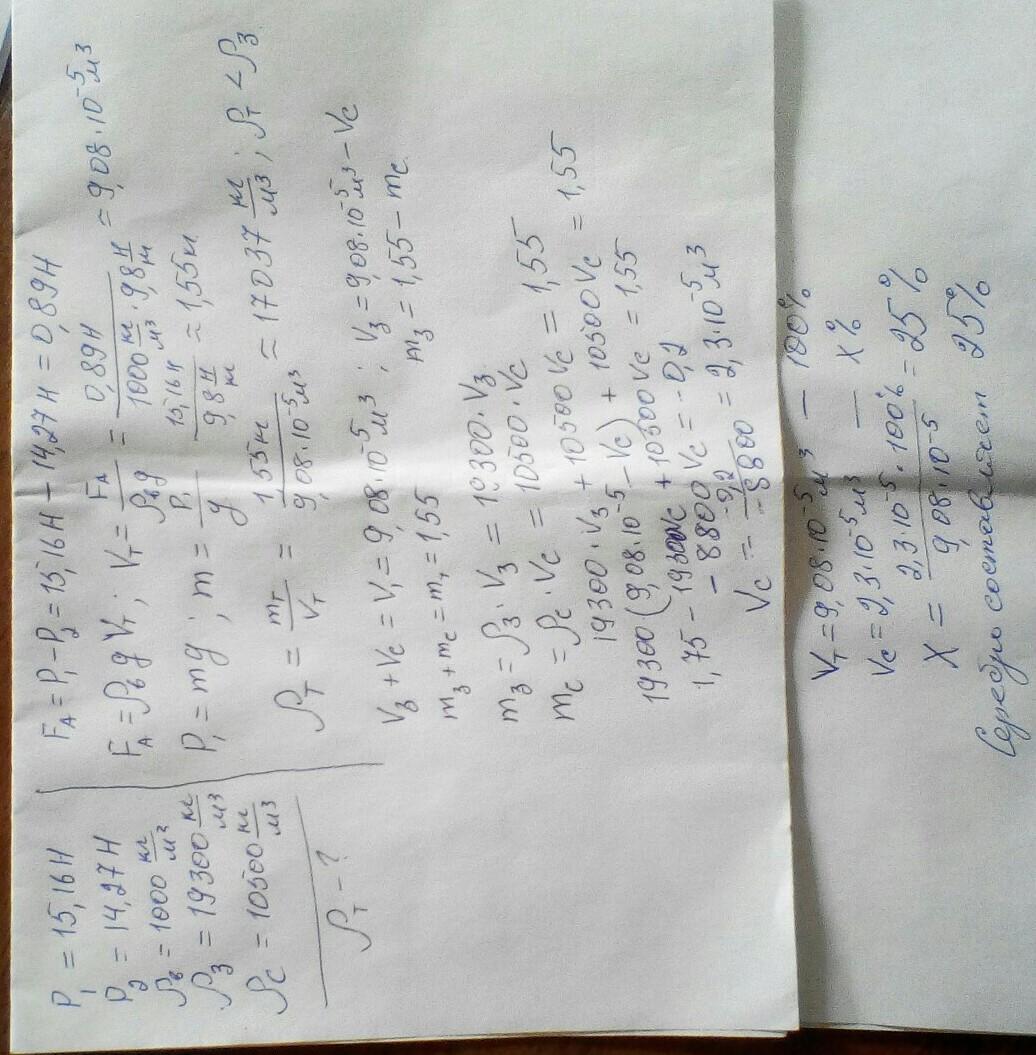 P₁ = 15,16 Н
P₂ = 14,27 Н
ρв = 1000 кг/м³
ρз = 19300 кг/м³
ρс = 10500 кг/м³
ρт - ?
Fₐ = P₁ - P₂ = 15,16 Н - 14,27 Н = 0,89 Н
Fₐ = ρв g Vт ; Vт = Fₐ/ρвg = 0,89 Н/1000 кг/м³ · 9,8 Н/кг = 9,08·10⁻⁵ м³
P₁ = mg ; m = P₁/g = 15,16 Н/9,8 Н/кг ≈ 1,55 кг
ρт = mт/Vт = 1,55 кг/9,08·10⁻⁵ м³ ≈ 17037 кг/м³ ; ρт < ρз
Vз + Vс = V₁ = 9,08·10⁻⁵ м³ ; Vз = 9,08·10⁻⁵ м³ - Vс
mз + mс = m₁ = 1,55 mз = 1,55 - mс
mз = ρз · Vз = 19300 · Vз
mс = ρс · Vс = 10500 · Vс
19300 · Vз + 10500 Vс = 1,55
19300 (9,08·10⁻⁵ - Vс) + 10500 Vс = 1,55
1,75 - 19300Vс + 10500 Vс = 1,55
- 8800 Vс = - 0,2
Vс = -0,2/-8800 = 2,3·10⁻⁵ м³
Vт = 9,08·10⁻⁵ м³ — 100%
Vс = 2,3·10⁻⁵ м³ — x %
X = 2,3·10⁻⁵ · 100%/9,08·10⁻⁵ = 25 %
Серебро составляет 25%